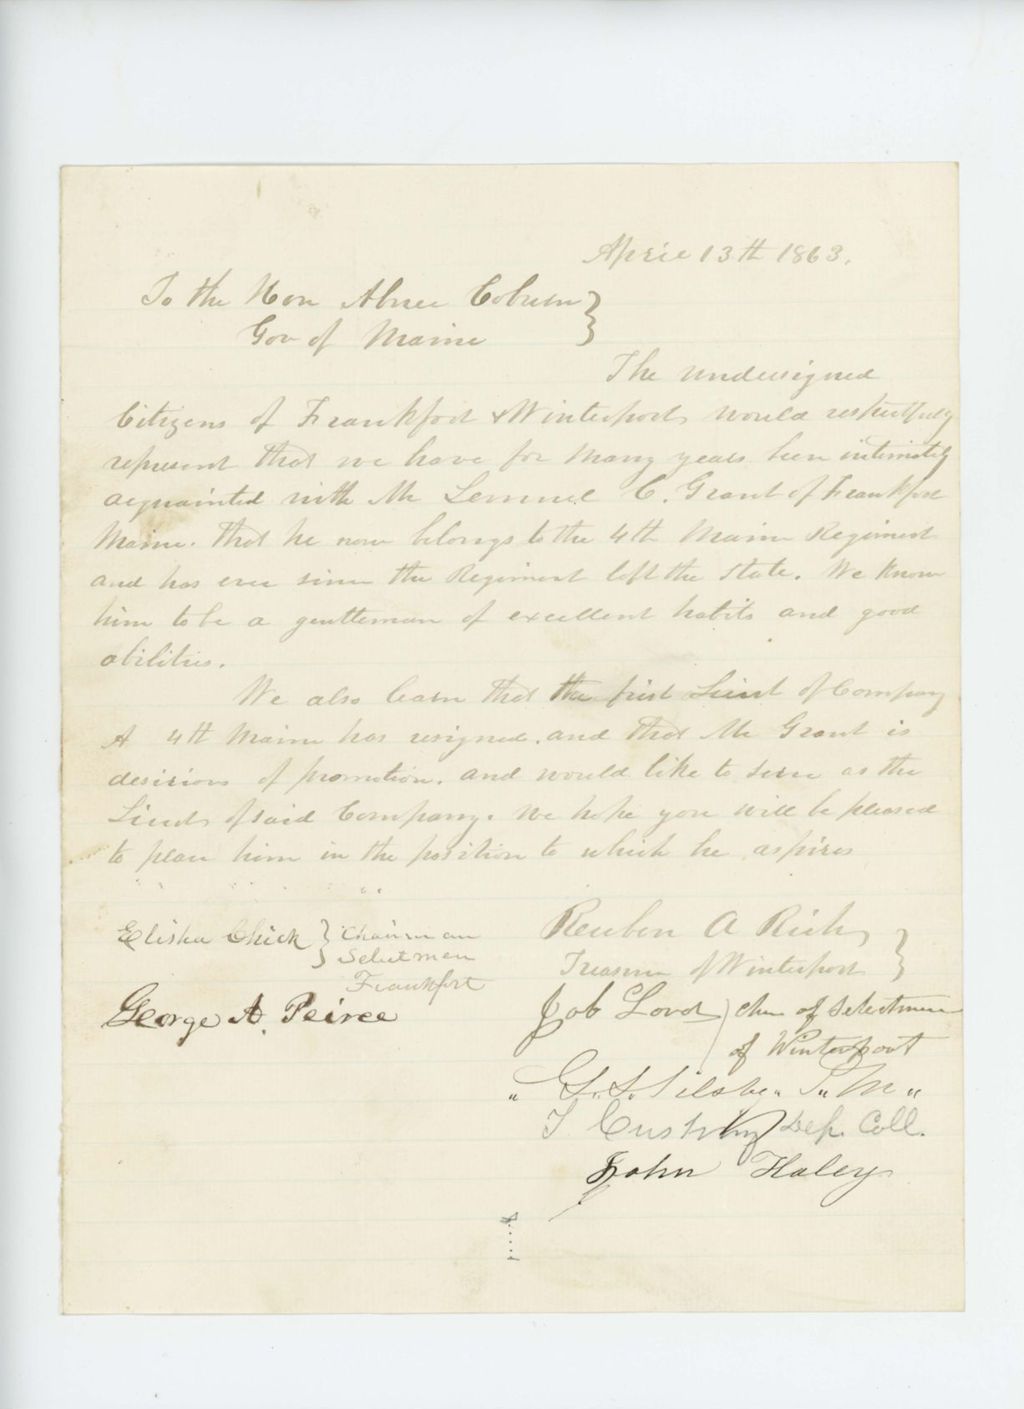 April 13th 1863.
To the Hon Abner Coburn }
Gov of Maine
The undersigned
Citizens of Frankfort & Winterport, would respectfully
represent that we have for many years been intimately
acquainted with Mr Lemuel C. Grant of Frankfort
Maine. that he now belongs to the 4th Maine Regiment
and has ever since the Regiment left the State. We know
him to be a gentleman of excellent habits and good
abilities.
We also learn that the first Lieut of Company
A 4th Maine has resigned. and that Mr Grant is
desirious of promotion. and would like to serve as the
Lieut of said Company. We hope you will be pleased
to place him in the position to which he aspires
Elisha Chick } Chairman
Selectmen
Frankfort
George A. Peirce
Reuben A Rich, }
Treasurer of Winterport
Job Lord ) Chm of Selectmen
of Winterport
" G. S. Silsby " P " M "
T Cushing Dep. Coll.
John Haley